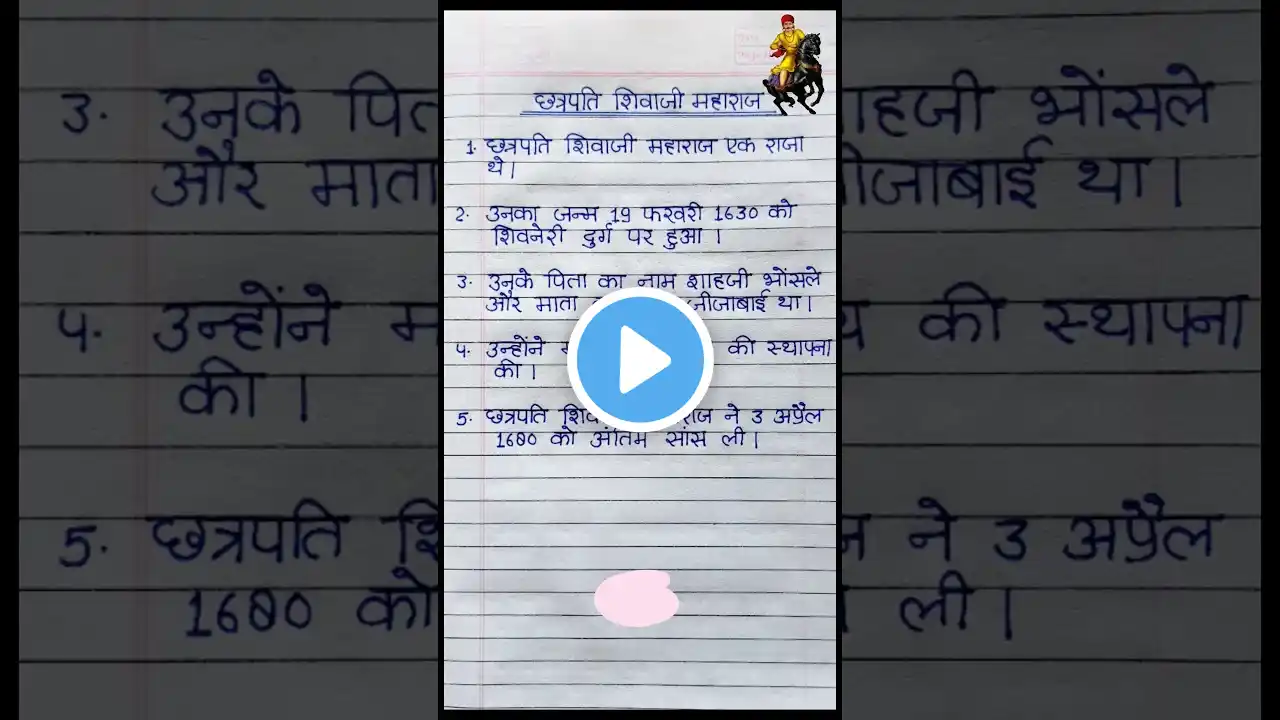 छत्रपति शिवाजी महाराज
1. छत्रपति शिवाजी महाराज एक राजा
थे।
2. उनका जन्म 19 फरवरी 1630 को
शिवनेरी दुर्ग पर हुआ।
3. उनके पिता का नाम शाहजी भोंसले
और माता जीजाबाई था।
4. उन्होंने की स्थापना
की।
5. छत्रपति ने 3 अप्रैल
1680 को अंतिम सांस ली।